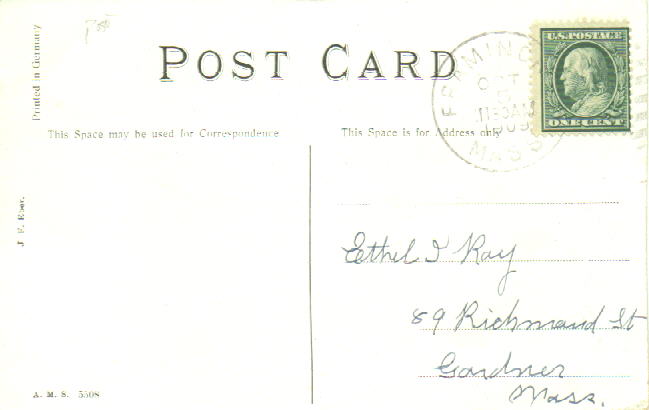 Printed in Germany
POST CARD
U.S. POSTAGE
ONE CENT
OCT
5
1130AM
1909
MASS
This Space may be used for Correspondence
This Space is for Address only
J. F. Eber.
Ethel I Ray
89 Richmond St
Gardner
Mass.
A. M. S. 5508